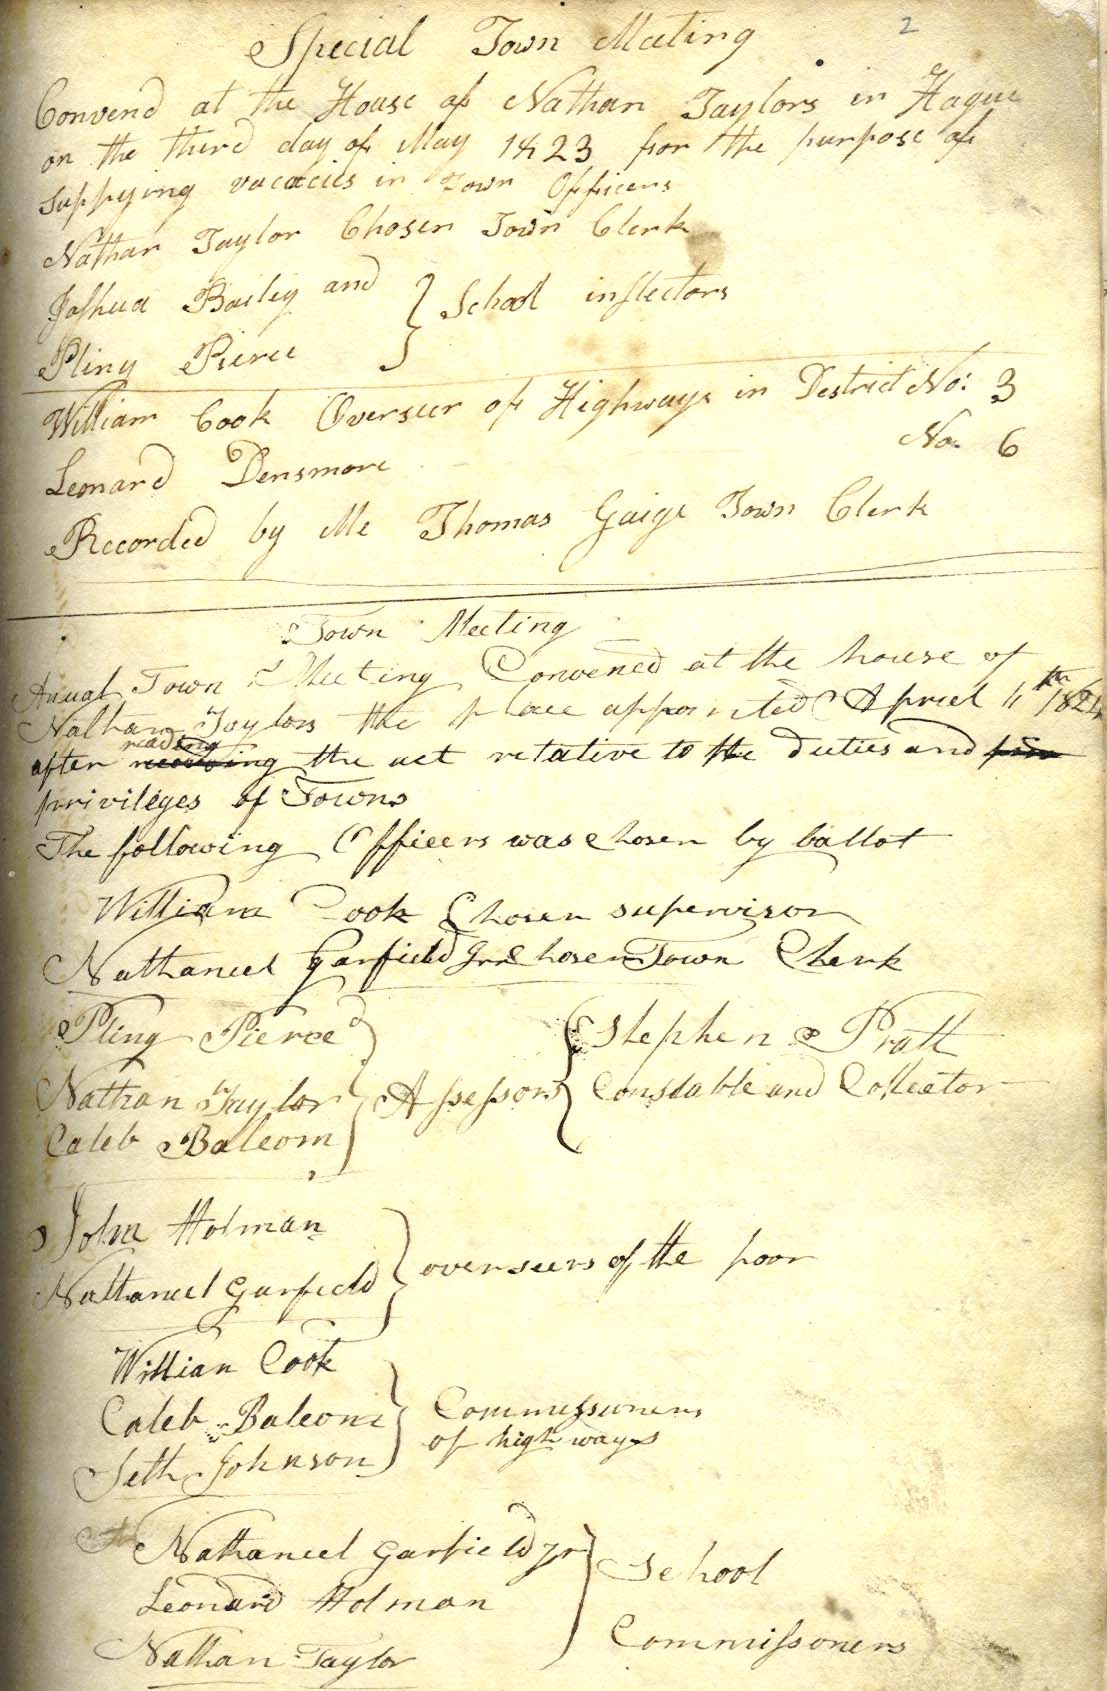 2
Special Town Meeting
Convend at the House of Nathan Taylors in Hague
on the third day of May 1823 for the purpose of
supplying vacacies in Town Officers
Nathan Taylor Chosen Town Clerk
Joshua Bailey and
Pliny Pierce } School inspectors
William Cook Overseer of Highways in District No: 3
Leonard Densmore No. 6
Recorded by Me Thomas Gaige Town Clerk
Town Meeting
Anual Town Meeting Convened at the house of
Nathan Taylors the place appointed April 4th 1824
after reading the act relative to the duties and
privileges of Towns
The following Officers was chosen by ballot
William Cook Chosen supervison
Nathaneel Garfield Jnr Chosen Town Clerk
Pliny Pierce
Nathan Taylor
Caleb Balcom } Assessors
{ Stephen Pratt
Constable and Collector
John Holman
Nathaneel Garfield } overseers of the poor
William Cook
Caleb Balcom
Seth Johnson } Commissioners
of highways
Nathaneel Garfield Jr
Leonard Holman
Nathan Taylor } School
Commissoners